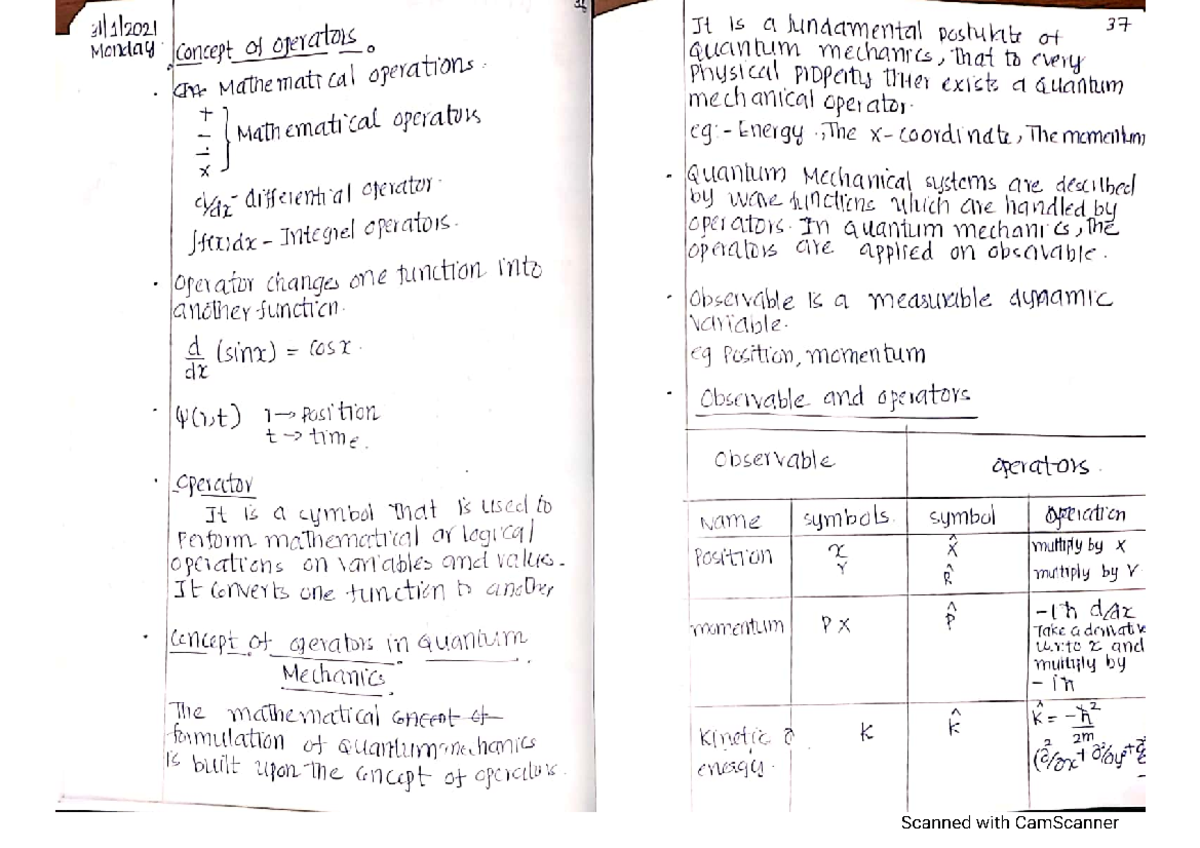 31/1/2021
Monday
Concept of operators.
Mathematical operations.
+
-
÷
x
Mathematical operators
d/dx - differential operator.
∫f(x)dx - Integrel operators.
Operator changes one function into
another function.
d/dx (sinx) = cosx.
Ψ(r,t) r→ Position
t → time.
Operator
It is a symbol that is used to
Perform mathematical or logical
operations on variables and value.
It converts one function to another
Concept of operators in Quantum
Mechanics
The mathematical concept of
formulation of quantum mechanics
is built upon the concept of operators.
37
It is a fundamental postulate of
Quantum mechanics, that to every
Physical property ther exists a Quantum
mechanical operator.
eg:- Energy, The x-coordinate, The momentum
Quantum Mechanical systems are described
by wave functions which are handled by
operators. In quantum mechanics, the
operators are applied on observable.
Observable is a measurable dynamic
variable.
eg Position, momentum
Observable and operators
Observable operators.
Name symbols. symbol Operation
Position x X̂ multiply by X
r R̂ multiply by r
momentum P X P̂ -iħ d/dx
Take a derivative
w.r.to x and
multiply by
- iħ
Kinetic K K̂ K̂ = -ħ²/2m
energy. (∂²/∂x² + ∂²/∂y² +
Scanned with CamScanner